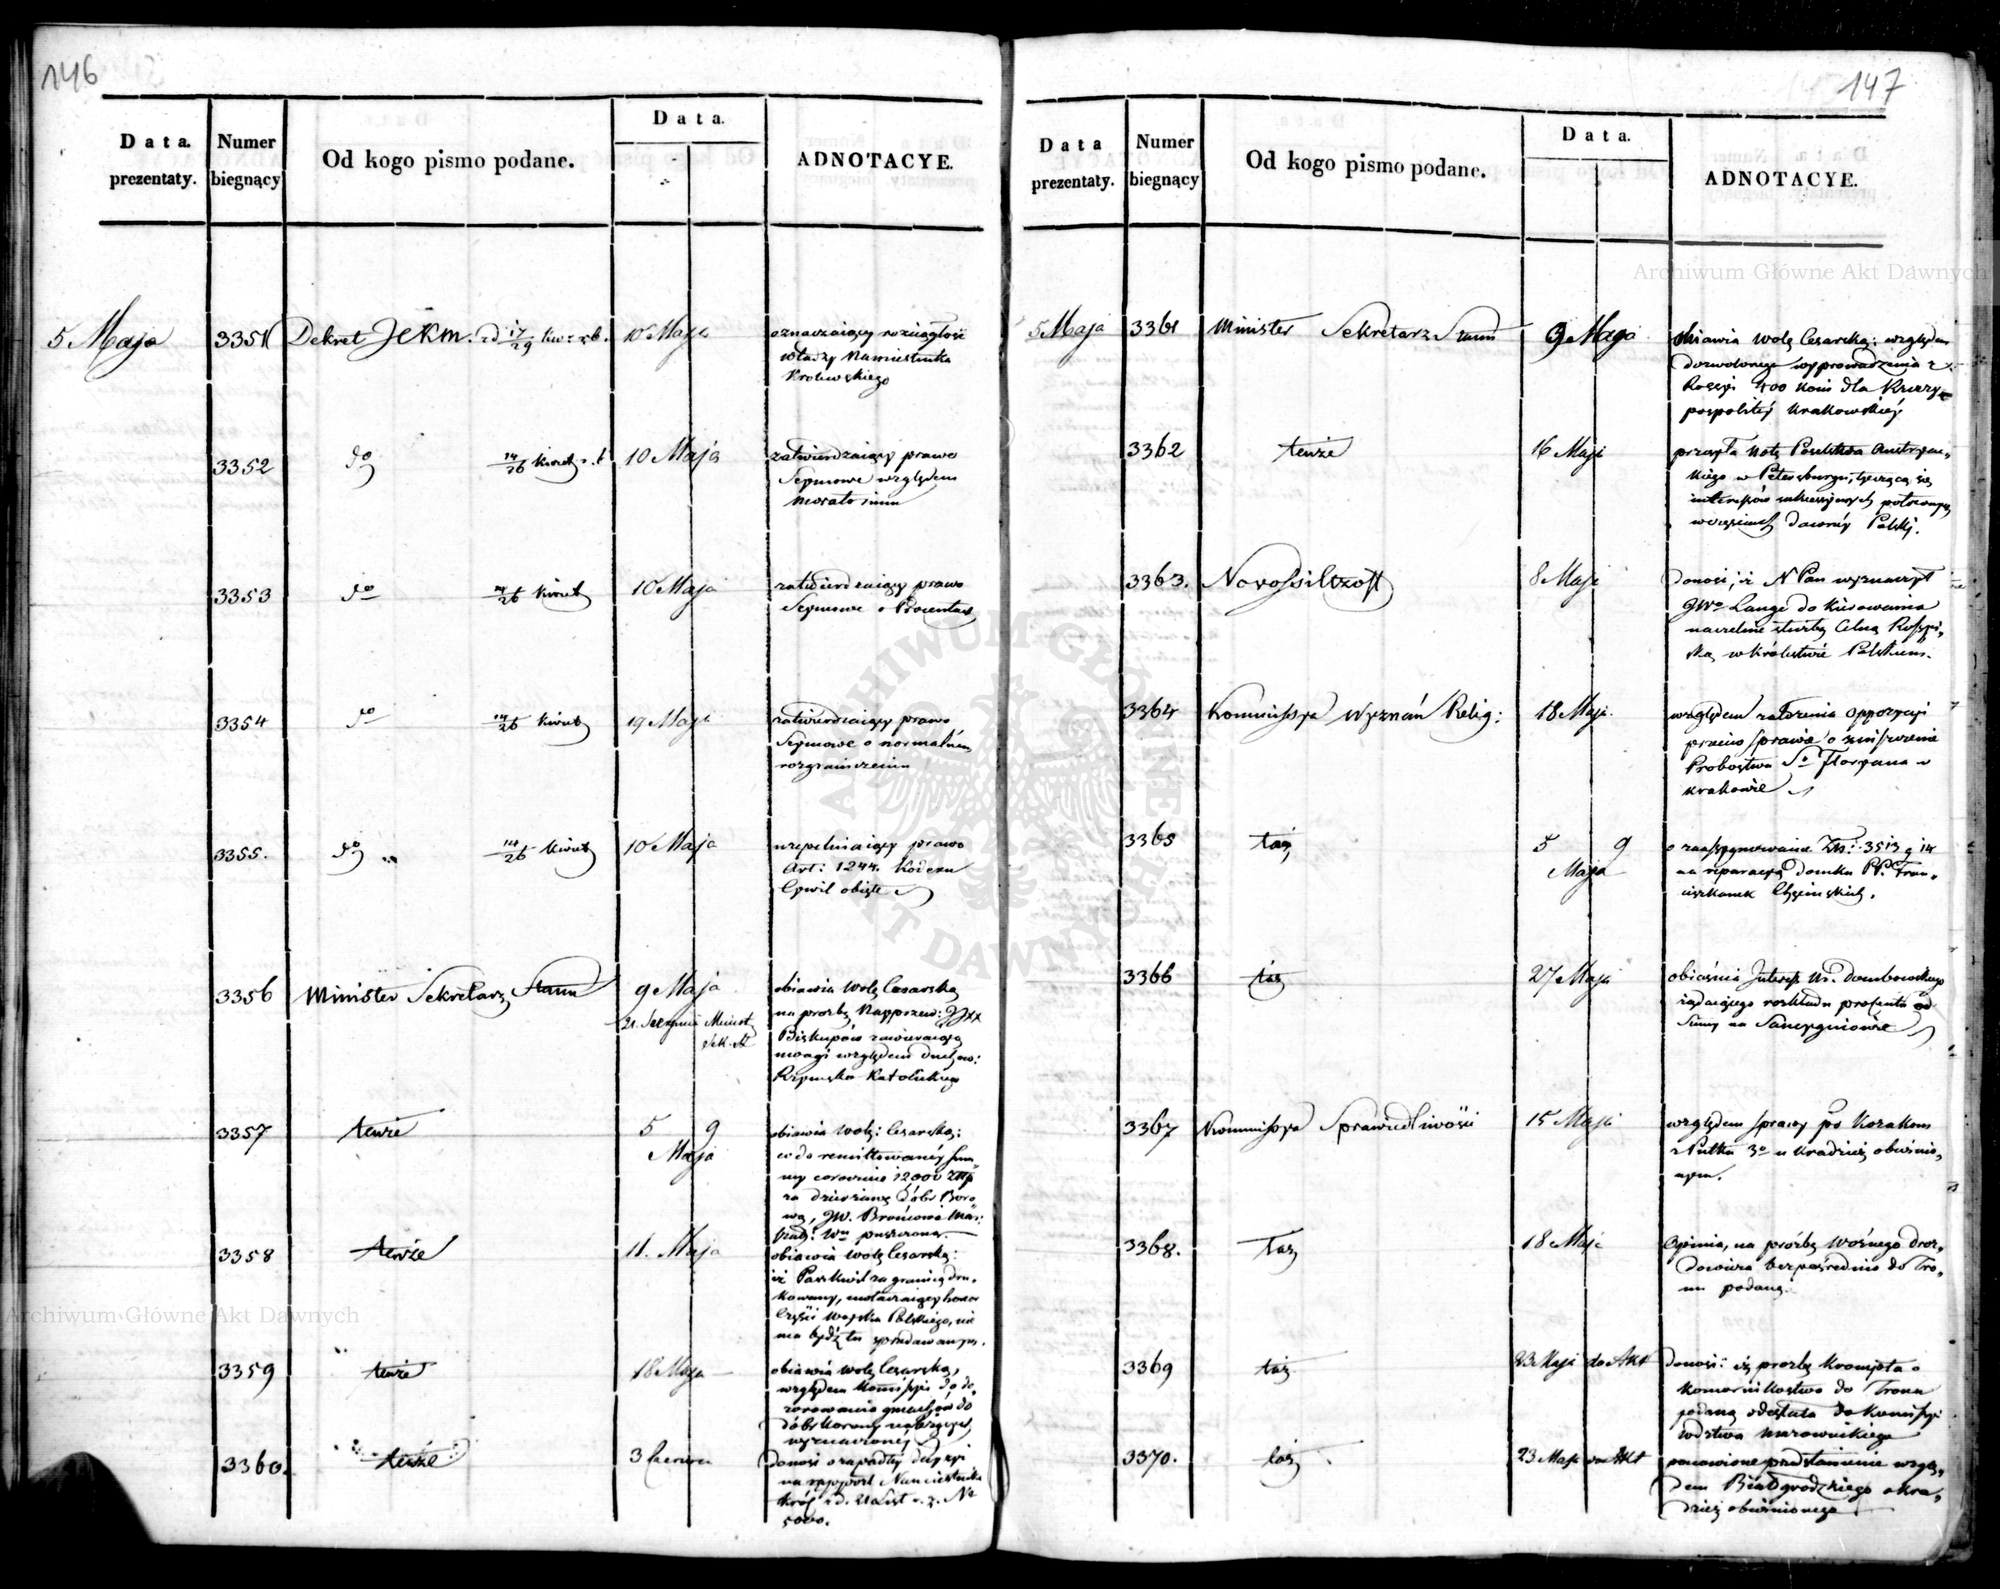 146
Data.
prezentaty.
Numer
biegnący
Od kogo pismo podane.
Data.
ADNOTACYE.
5 Maja
3351
Dekret JCKM. z d 17/29 Kw: r. b.
10 Maja
oznaczaiący rozciągłość
władzy Namiestnika
Królewskiego
3352
do
14/26 Kwiet r. b
10 Maja
zatwierdzaiący prawo
Seymowe względem
Moratorium
3353
do
14/26 Kwiet
10 Maja
zatwierdzaiący prawo
Seymowe o Procentach
3354
do
14/26 Kwiet
19 Maja
zatwierdzaiący prawo
Seymowe o normalném
rozgraniczeniu
3355.
do
14/26 Kwiet
10 Maja
uzupełniaiący prawo
Art: 1244. Kodexu
Cywil
3356
Minister Sekretarz Stanu
9 Maja
obiawia wolę Cesarską
na prozbę
Biskupów zawieraiącą
uwagi względem duchow:
Rzymsko Katolickiego
3357
tenże
5 9
Maja
obiawia wolę: Cesarską:
co do remittowaney Sum
my corocznie 12000 Złp
za dzierżawę dóbr Boro
wa, JW. Brońcowi Mar:
3358
tenże
11. Maja
obiawia wolę Cesarską:
iż Paszkwil za granicą dru-
kowany, honor
Części Woyska Polskiego, nie
ma bydź tu sprzedawanym.
3359
tenże
18 Maja
obiawia wolę Cesarską,
względem Komissyi do do-
zorowania gmachów do
dóbr Korony należących
wyznaczoney
3360.
tenże
3 Czerwca
donosi o zapadłey decyzyi
na rapport Namiestnika
Król z d. 21 List r. z. No
5000.
147
Data
prezentaty.
Numer
biegnący
Od kogo pismo podane.
Data.
ADNOTACYE.
5 Maja
3361
Minister Sekretarz Stanu
9 Maja
obiawia wolę Cesarską: względem
dozwolonego wyprowadzenia z
Rossyi 400 koni dla Rzeczy-
pospolitéy Krakowskiéy
3362
tenże
16 Maja
przesyła Notę Poselstwa Austryac-
kiego w Petersburgu, tyczącą się
interessów sukcessyinych
dawnéy Polski.
3363.
Novossilzoff
8 Maja
donosi, iż N Pan wyznaczył
JWo Lange do kierowania
naczelnie służbą Celną Rossyi-
ską w Królestwie Polskiem.
3364
Kommissya Wyznań Relig:
18 Maja.
względem założenia oppozycyi
przeciw sprawie o zniszczenie
Probostwa So Floryana w
Krakowie
3365
taż
5 9
Maja
o zaassygnowanie Złt: 3513 g 14
na reparacyą domku PP. Fran-
ciszkanek Chęcińskich.
3366
taż
27 Maja
obiaśnia Interess Ur. Dombrowskiego
żądaiącego rozkładu procentu od
Summy na Sancygniowie
3367
Kommissya Sprawiedliwości
15 Maja
względem sprawy po Kozakom
z Pułku 3o o kradzież obwinio-
nym.
3368.
Taż
18 Maja
Opinia, na prożbę Woźnego Droz-
dowicza bezpośrednio do Tro-
nu podaną.
3369
taż
23 Maja do Akt
donosi: iż, prozbę o
Komornikostwo do Tronu
podaną odesłała do Komissyi
Wdztwa Mazowieckiego
3370.
taż
23 Maja do Akt
ponowione przedstawienie wzglę-
dem Białogrodzkiego o kra-
dzież obwinionego
Archiwum Główne Akt Dawnych
Archiwum Główne Akt Dawnych
ARCHIWUM GŁÓWNE AKT DAWNYCH